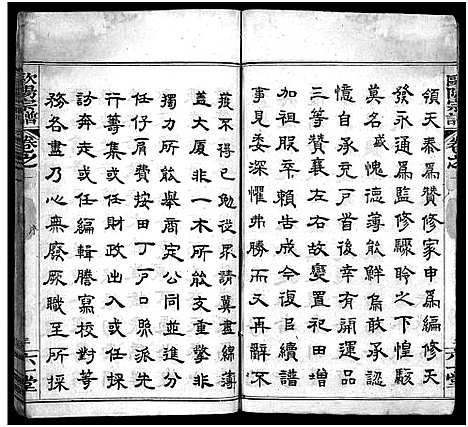 歐陽宗譜
卷之
六一堂
領天泰爲贊修家申爲編修天
發永通爲監修驟聆之下惶駭
莫名感愧德薄鮮烏敢獻品
憶自承充戸首後幸有開運品
三等贊襄左右故變置機宜
加祖嘏嘗不兩次保後巨續譜
事見委深懼弗勝而又再辭不
獲不得已勉從尾請冀盡綿薄
蓋大厦非一木所能支重鑿非
獨力所能舉商定公同並進分
任仔肩費按田丁戸口縣派先
行籌集或任財政出入或任採
訪奔走或任編輯謄寫校對等
務各盡乃心無廢厥職至所採
歐陽宗譜
卷之
序
六一堂